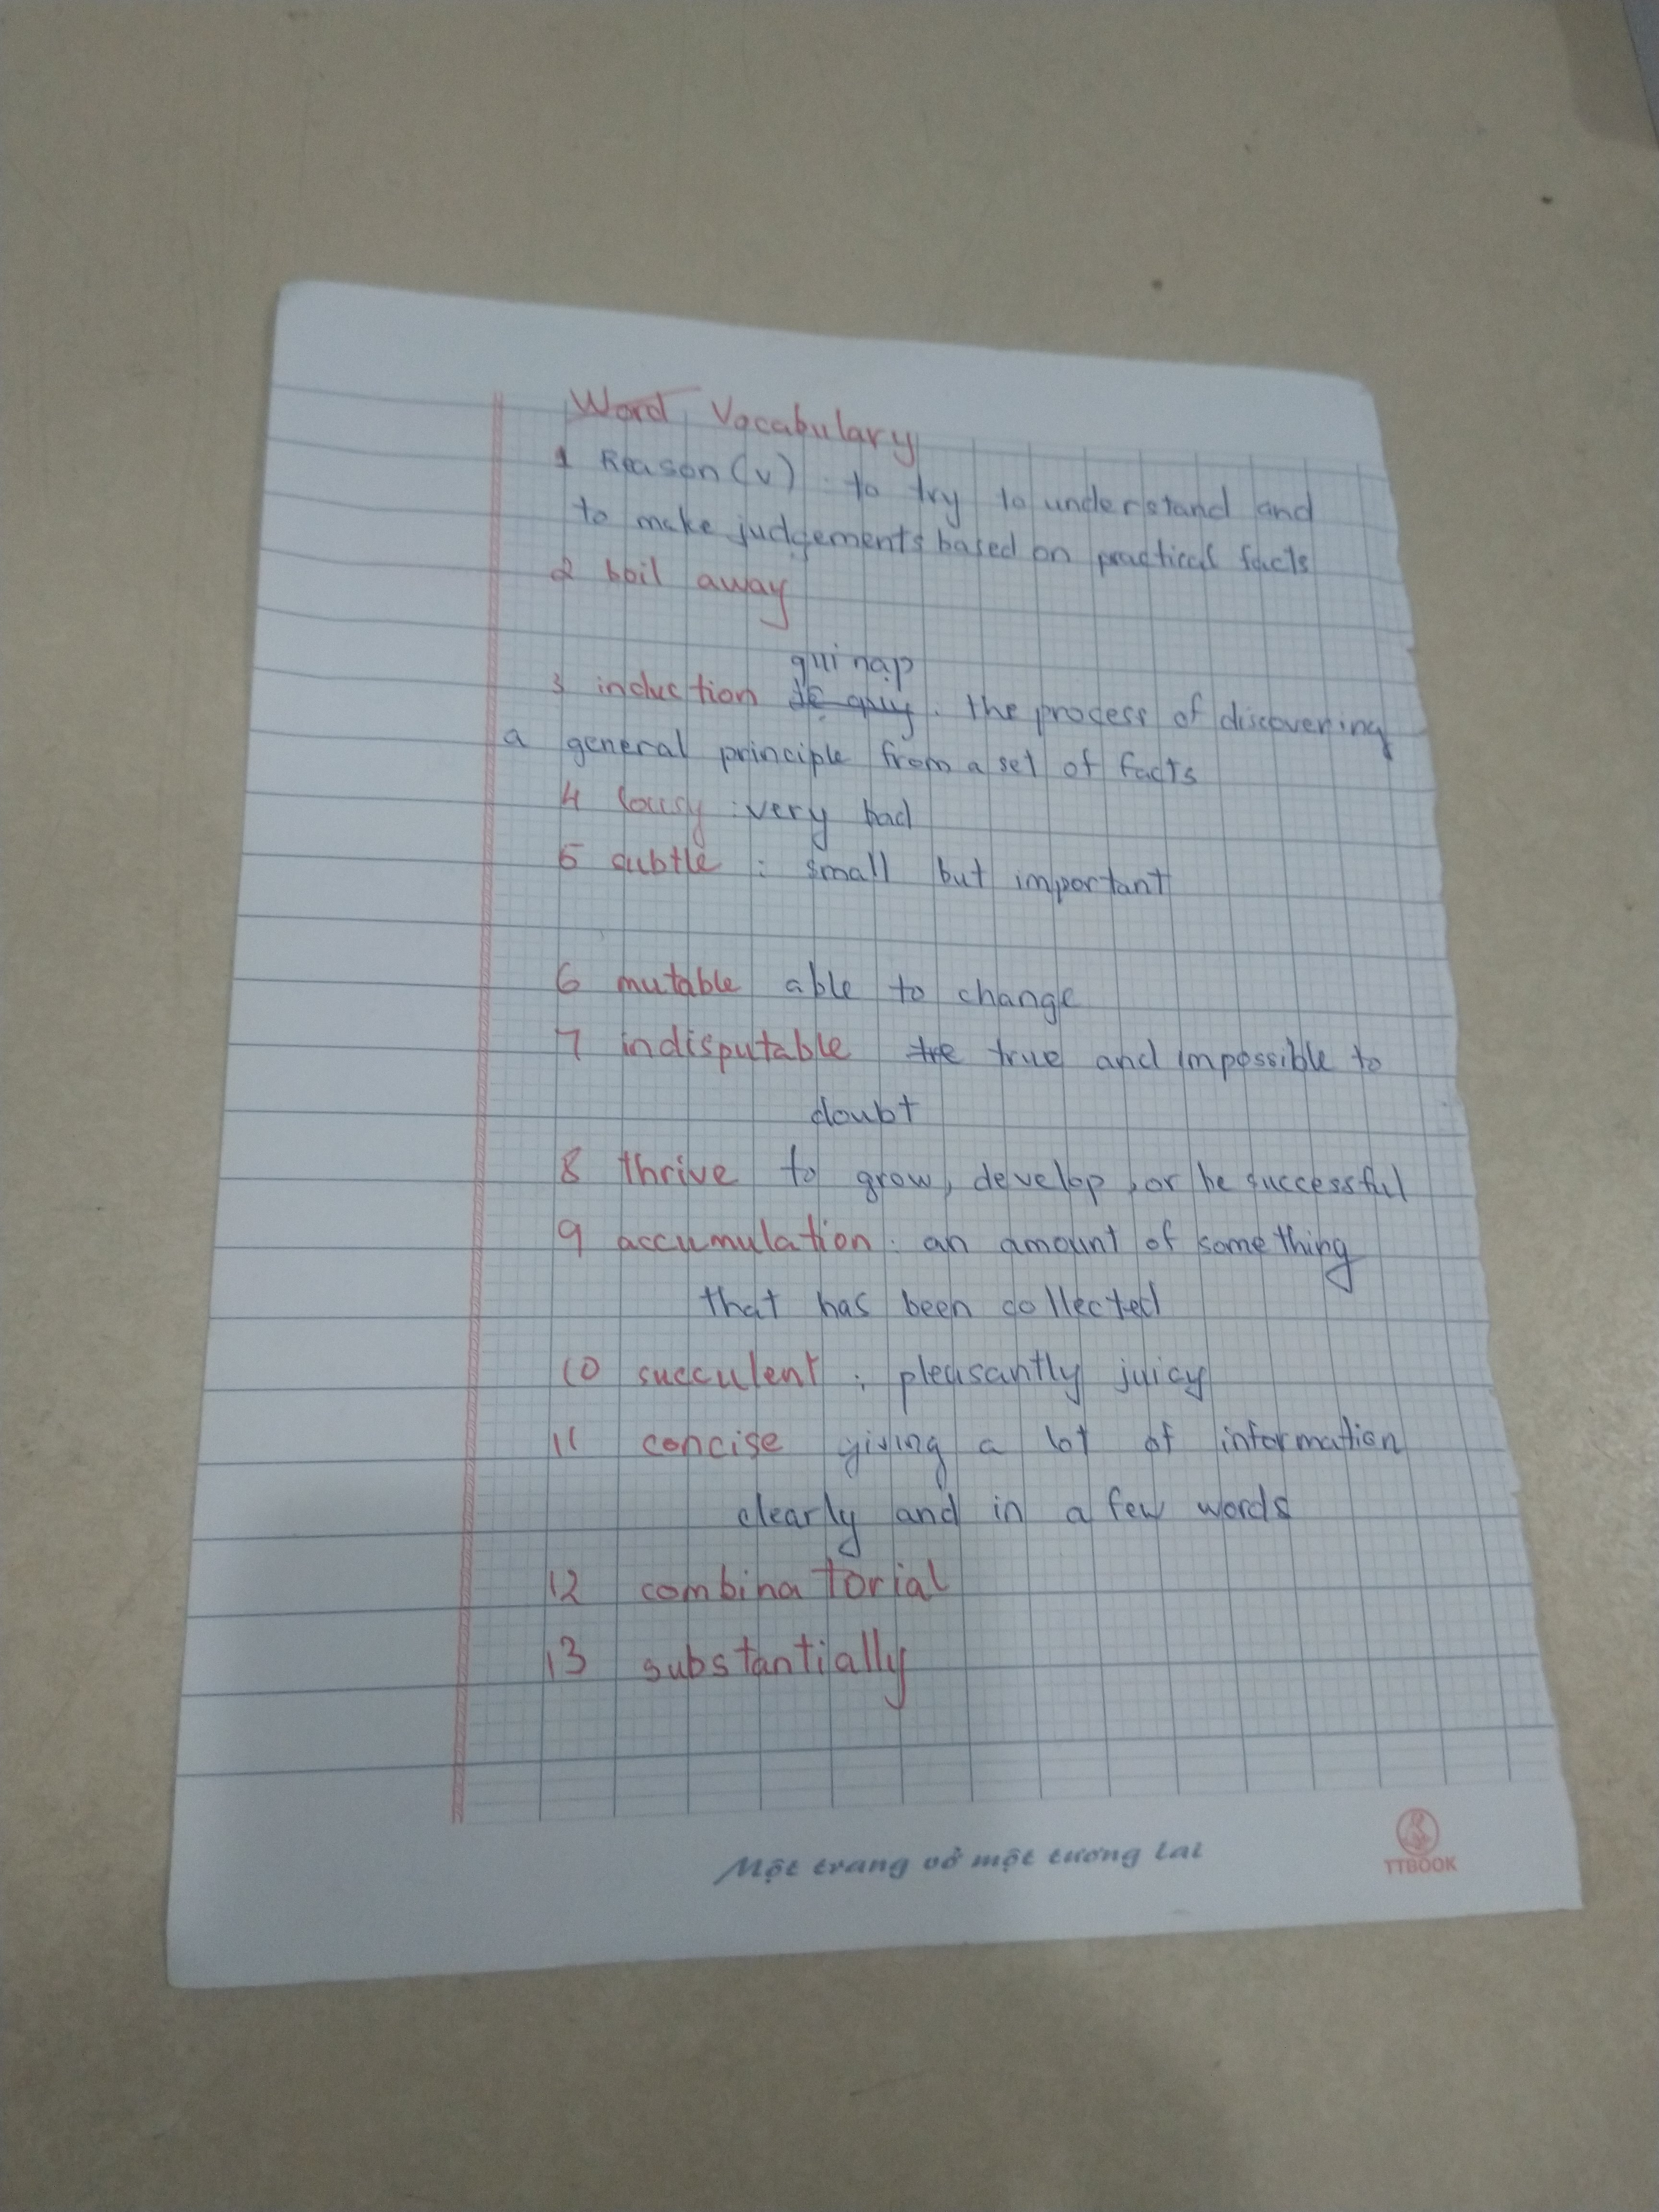 Word Vocabulary
1 Reason (v) : to try to understand and
to make judgements based on practical facts
2 boil away
qui nạp
3 induction đệ quy : the process of discovering
a general principle from a set of facts
4 lousy : very bad
5 subtle : small but important
6 mutable able to change
7 indisputable tre true and impossible to
doubt
8 thrive to grow, develop, or be successful
9 accumulation : an amount of something
that has been collected
10 succulent : pleasantly juicy
11 concise giving a lot of information
clearly and in a few words
12 combinatorial
13 substantially
Một trang vở một tương lai
TTBOOK